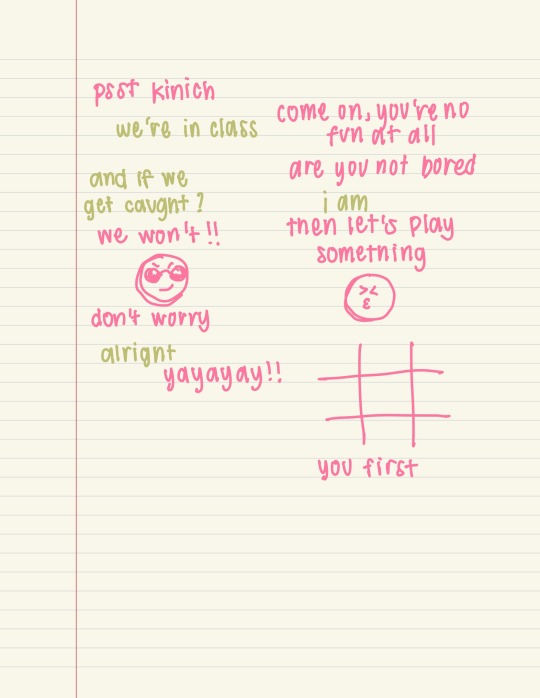 psst kinich
we're in class
come on, you're no
fun at all
are you not bored
i am
then let's play
something
and if we
get caught?
we won't!!
don't worry
alright
yayayay!!
you first